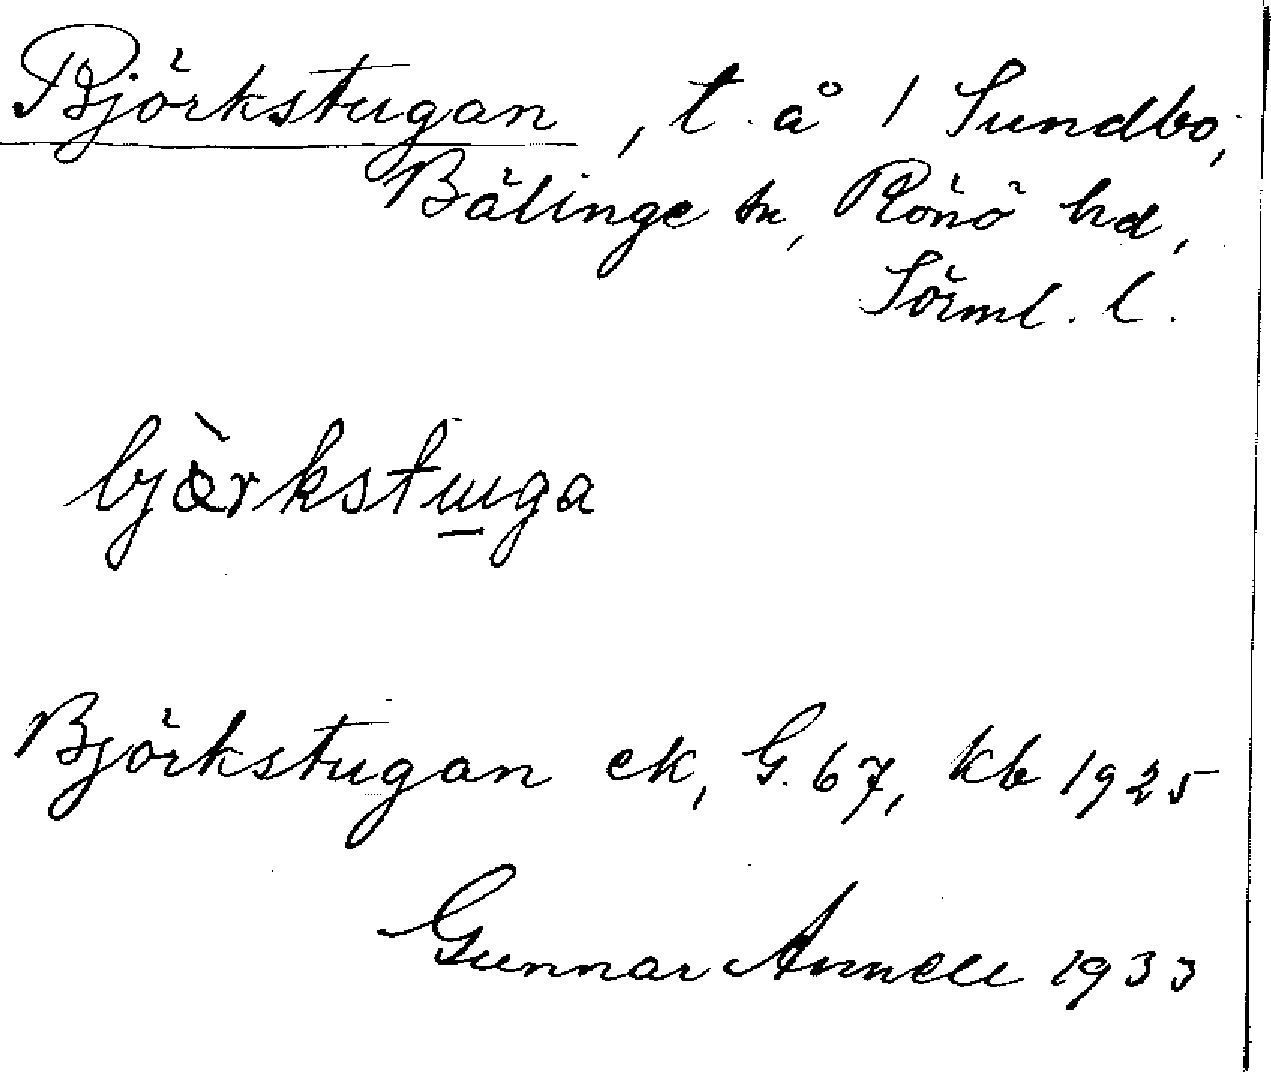 Björkstugan, t. å 1 Sundbo,
Bälinge sn, Rönö hd,
Sörml. l.
bjærkstuga
Björkstugan ek, G. 67, kb 1925
Gunnar Annell 1933